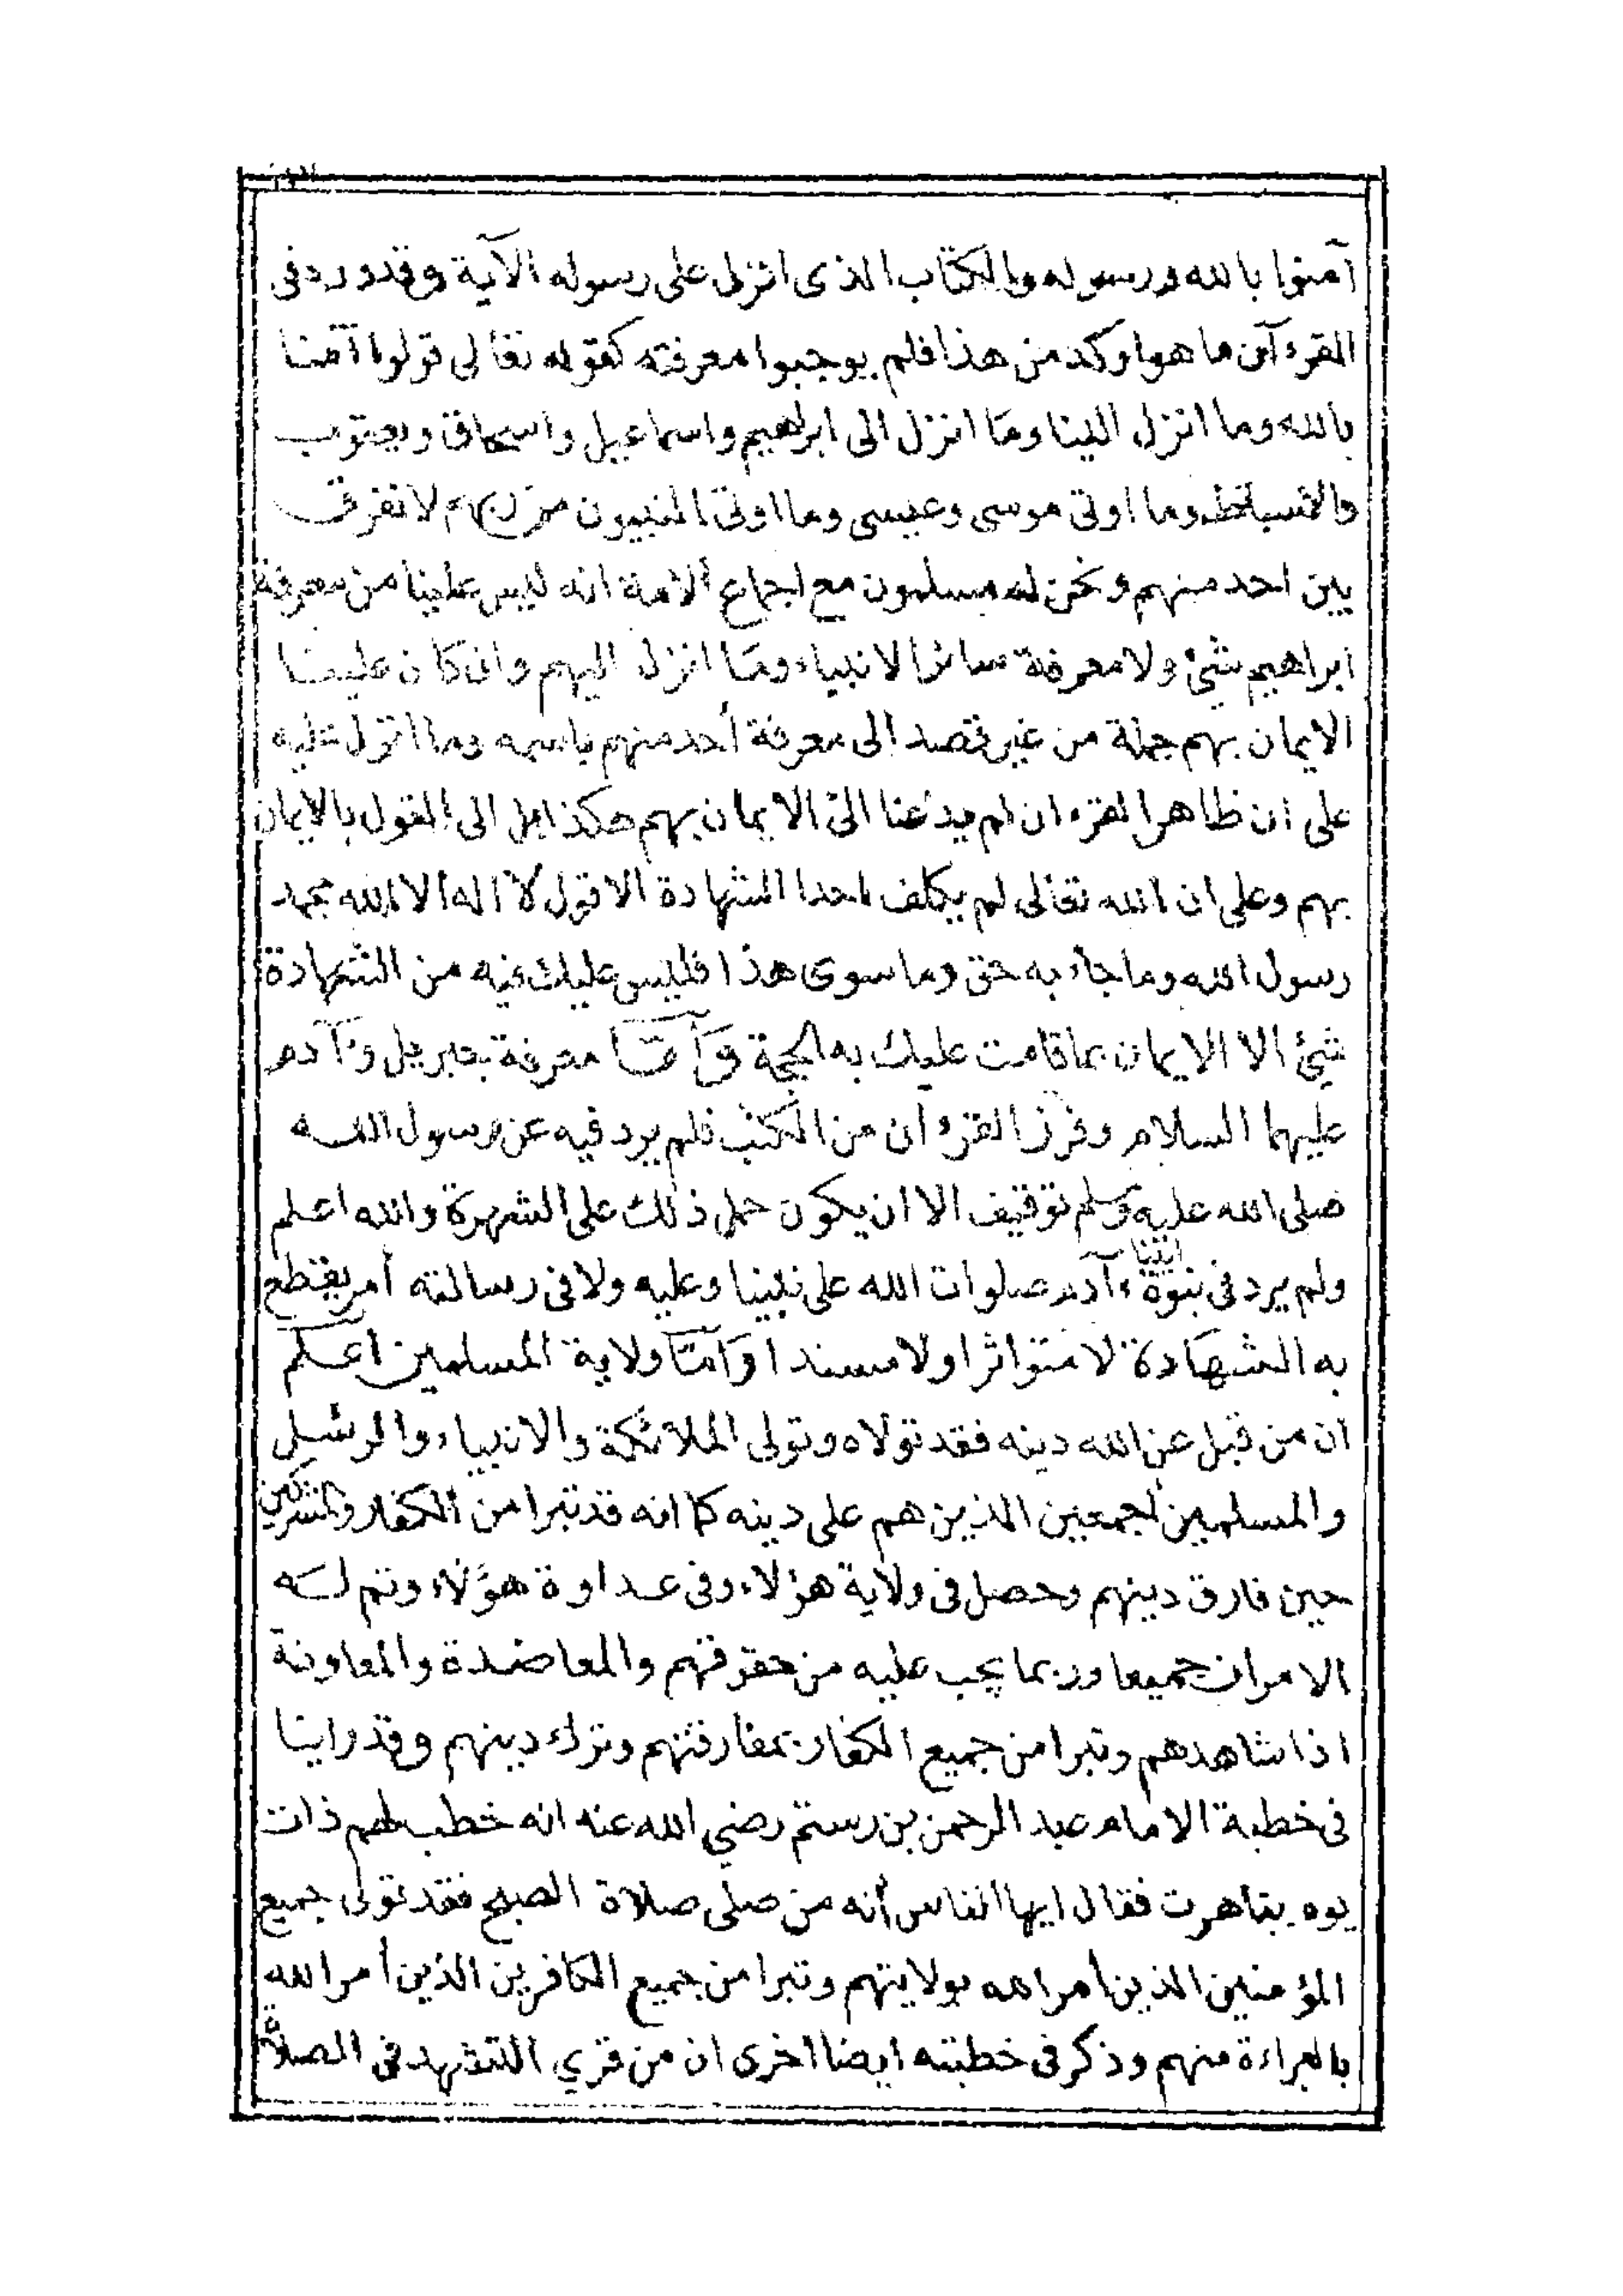 آمنوا بالله ورسوله والكتاب الذى انزل على رسوله الآية وقد ورد فى
القرءآن ما هو اوكد من هذا فلم يوجبوا معرفته كقوله تعالى قولوا آمنا
بالله وما انزل الينا وما انزل الى ابراهيم واسماعيل واسحاق ويعقوب
والاسباط وما اوتى موسى وعيسى وما اوتى النبيون من ربهم لا نفرق
بين احد منهم ونحن له مسلمون مع اجماع الامة انه ليس علينا من معرفة
ابراهيم شئ ولا معرفة سائر الانبياء وما انزل اليهم وان كان علينا
الايمان بهم جملة من غير قصد الى معرفة أحد منهم باسمه وما انزل عليه
على ان ظاهر القرءان لم يدعنا الى الايمان بهم هكذا بل الى القول بالايمان
بهم وعلى ان الله تعالى لم يكلف احدا الشهادة الا قول لا اله الا الله محمد
رسول الله وما جاء به حق وما سوى هذا فليس عليك فيه من الشهادة
شئ الا الايمان بما قامت عليك به الحجة وأما معرفة جبريل وءآدم
عليهما السلام وفرز القرءان من الكتب فلم يرد فيه عن رسول الله
صلى الله عليه وسلم توقيف الا ان يكون حمل ذلك على الشهرة والله اعلم
ولم يرد فى نبوة ابينا ءآدم صلوات الله على نبينا وعليه ولا فى رسالته أمر يقطع
به الشهادة لا متواثرا ولا مسندا وأما ولاية المسلمين اعلم
ان من قبل عن الله دينه فقد تولاه وتولى الملائكة والانبياء والرسل
والمسلمين أجمعين الذين هم على دينه كما انه قد تبرا من الكفار والمشركين
حين فارق دينهم وحصل فى ولاية هؤلاء وفى عداوة هؤلاء وتم له
الامران جميعا وربما يجب عليه من حقوقهم والمعاضدة والمعاونة
اذا شاهدهم وتبرا من جميع الكفار بمفارقتهم وترك دينهم وقد راينا
فى خطبة الامام عبد الرحمن بن رستم رضي الله عنه انه خطب لهم ذات
يوم بتاهرت فقال ايها الناس أنه من صلى صلاة الصبح فقد تولى جميع
المؤمنين الذين أمر الله بولايتهم وتبرا من جميع الكافرين الذين أمر الله
بالبراءة منهم وذكر فى خطبته ايضا اخرى ان من قري التشهد فى الصلاة